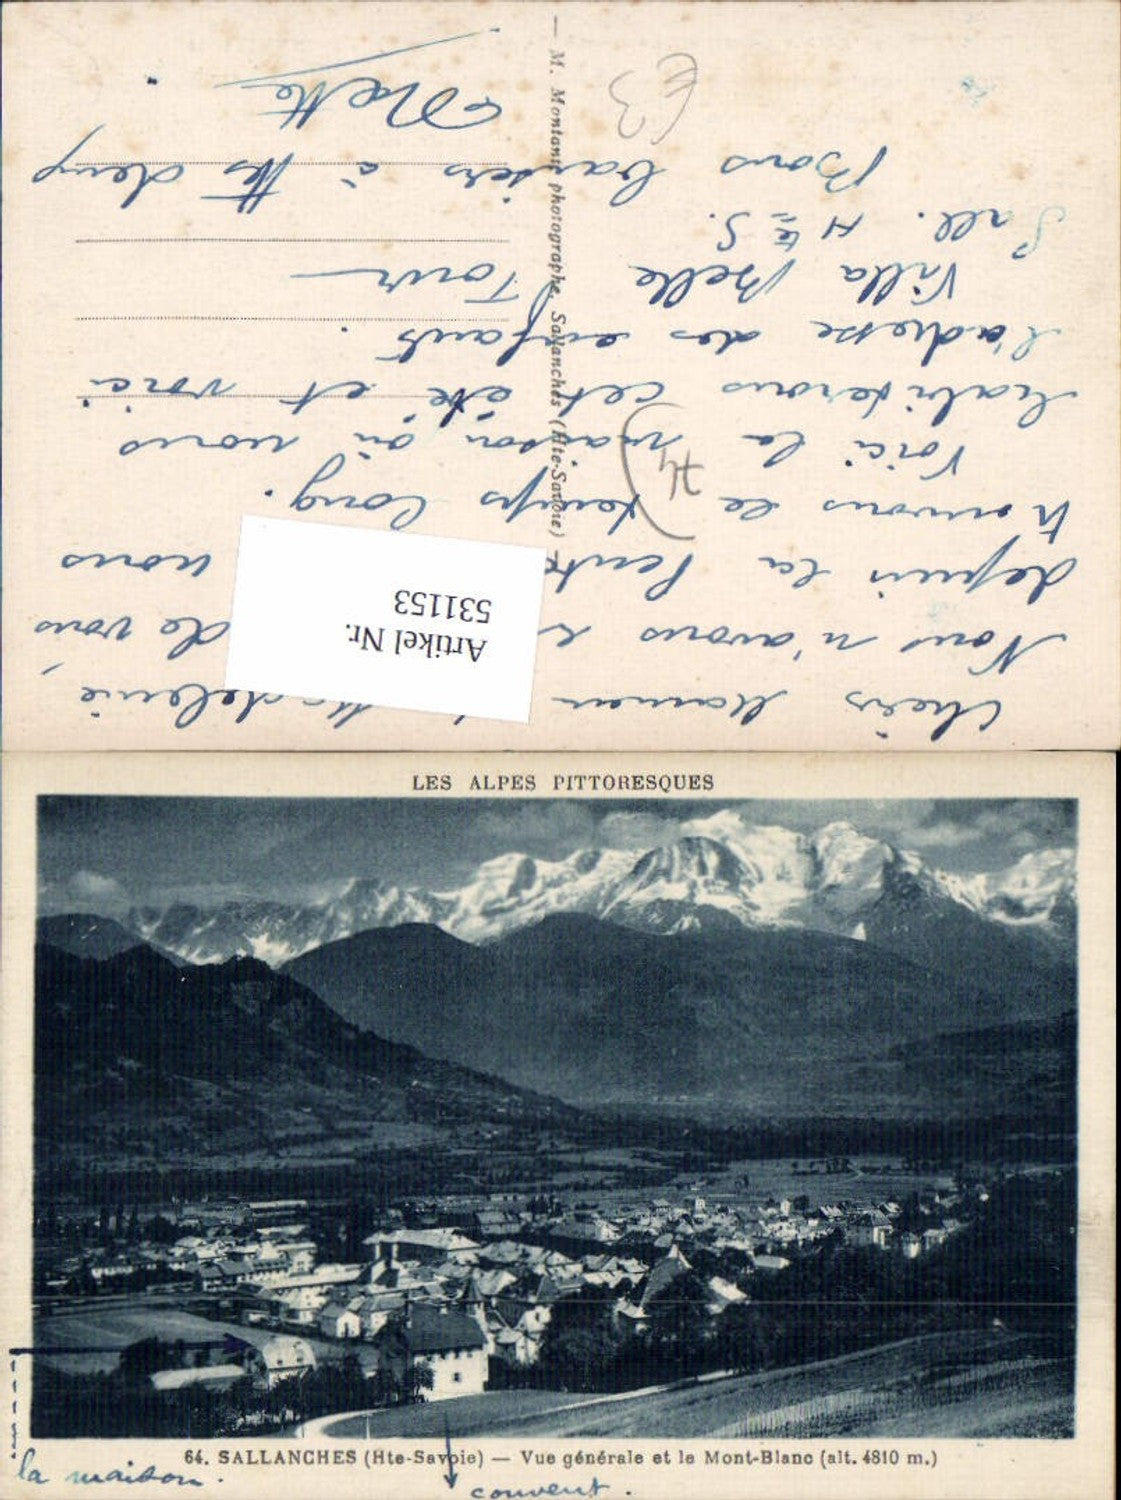 Chers Maman
Madeleine,
Nous n'avons
de vous
depuis la
nous
trouvons le temps long.
Voici la maison où nous
habiterons cet été et voici
l'adresse des enfants.
Villa Belle Tour
Sall. Hte S.
Bons baisers à ttes deux
— M. Montant, photographe, Sallanches (Hte-Savoie) —
(74)
€3
Artikel Nr.
531153
LES ALPES PITTORESQUES
64. SALLANCHES (Hte-Savoie) — Vue générale et le Mont-Blanc (alt. 4810 m.)
la maison.
couvent.